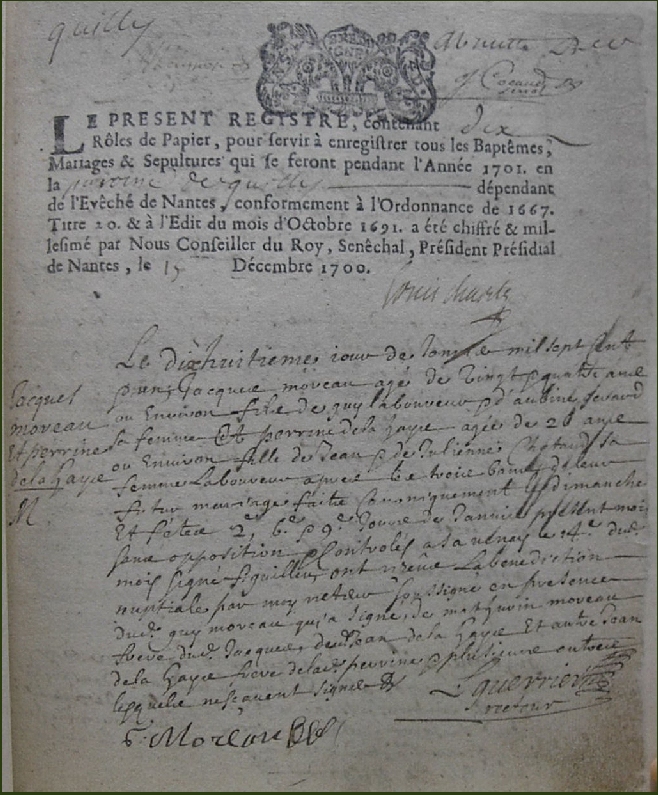 quilly
LE PRESENT REGISTRE, contenant dix
Rôles de Papier, pour servir à enregistrer tous les Baptêmes,
Mariages & Sepultures qui se feront pendant l'Année 1701. en
la parroisse de quilly dépendant
de l'Evêché de Nantes, conformement à l'Ordonnance de 1667.
Titre 20. & à l'Edit du mois d'Octobre 1691. a été chiffré & mil-
lesimé par Nous Conseiller du Roy, Senêchal, Président Présidial
de Nantes, le 15 Décembre 1700.
Louis charle
Jacques
moreau
Et perrine
de la haye
M
Le dixhuitieme iour de mil sept Cent
un Jacques moreau agé de vingt quatre ans
ou Environ fils de guy laboureur & d'aubine
sa femme Et perrine de la haye agée de 26 ans
ou Environ fille de Jean & de Julienne sa
femme Laboureur apres les trois bans de leur
futur mariage faits dimanche
Et fêtes 2e, 6e & 9e Jours de Janvier present mois
sans opposition & Controlés a savenay le 14e dud.
mois signé ont receu La benediction
nuptiale par moy recteur soussigné en presence
dud. guy moreau qui a signé de mathurin moreau
frere dud. Jacques de Jean de la haye Et autre Jean
de la haye frere de lad. perrine & plusieurs autres
lesquels ne sçavent signer
G. Moreau
L guerrier
recteur